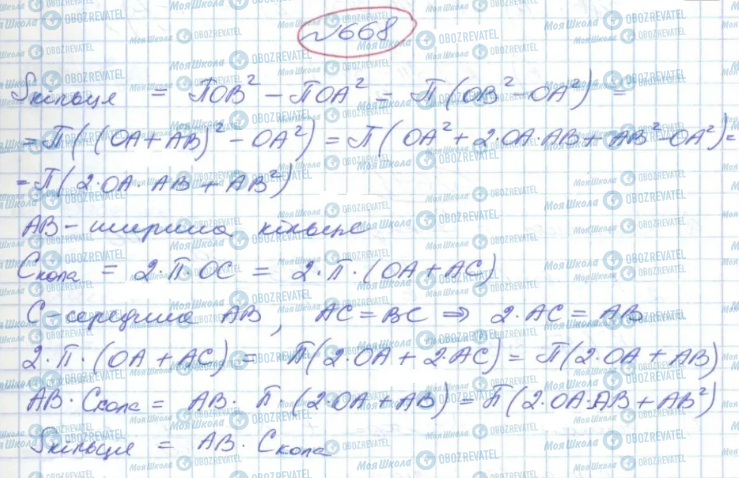 №668
Sкільце = ПOB² − ПOA² = П(OB² − OA²) =
= П((OA + AB)² − OA²) = П(OA² + 2·OA·AB + AB² − OA²) =
= П(2·OA·AB + AB²)
AB – ширина кільце
Cкола = 2·П·OC = 2·П·(OA + AC)
C – середина AB, AC = BC ⇒ 2·AC = AB
2·П·(OA + AC) = П(2·OA + 2·AC) = П(2·OA + AB)
AB·Cкола = AB·П·(2·OA + AB) = П(2·OA·AB + AB²)
Sкільце = AB·Cкола